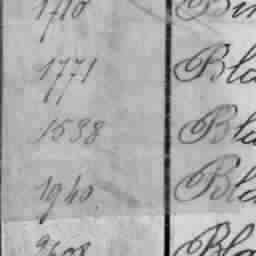 1710 Bin
1771 Bla
1538 Bla
1940 Bla
Bla